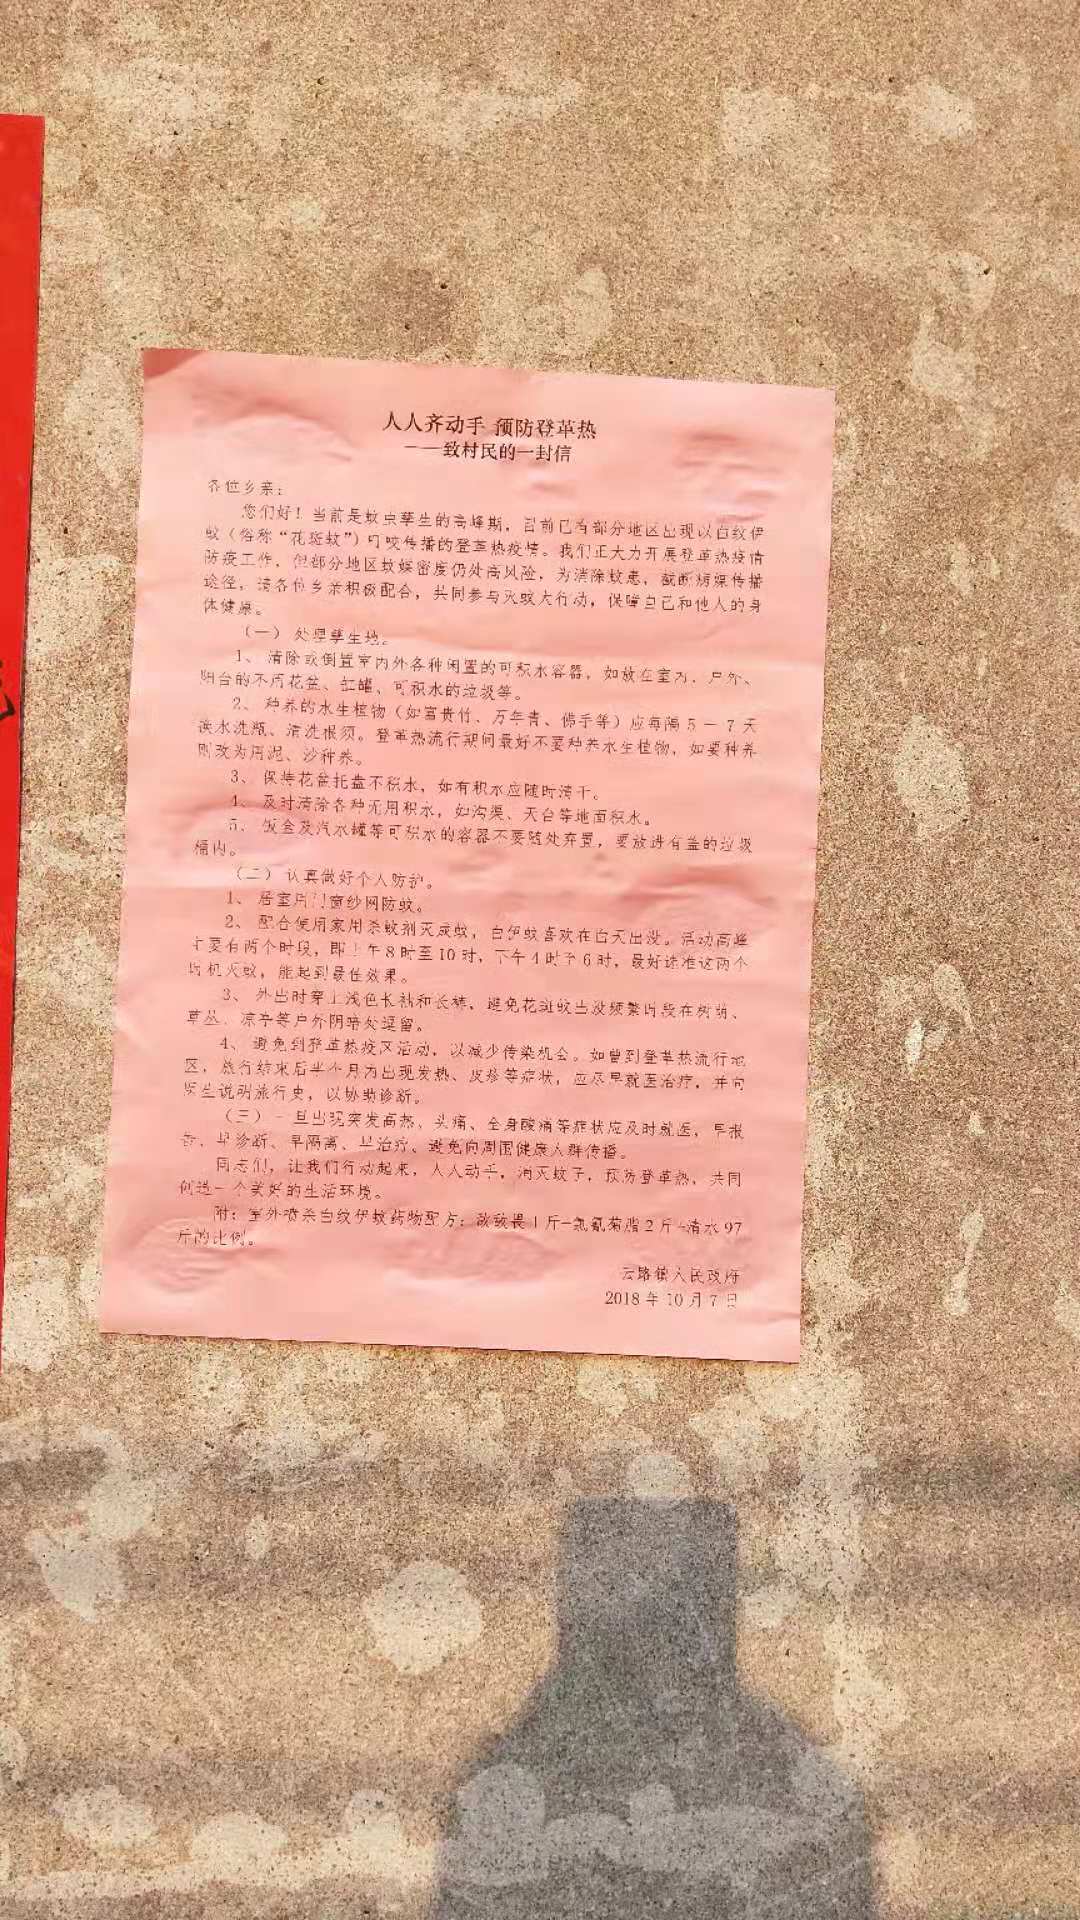 人人齐动手 预防登革热
——致村民的一封信
各位乡亲：
您们好！当前是蚊虫孳生的高峰期，目前已有部分地区出现以白纹伊
蚊（俗称“花斑蚊”）叮咬传播的登革热疫情。我们正大力开展登革热疫情
防疫工作，但部分地区蚊媒密度仍处高风险，为消除蚊患，截断病媒传播
途径，请各位乡亲积极配合，共同参与灭蚊大行动，保障自己和他人的身
体健康。
（一） 处理孳生地。
1、 清除或倒置室内外各种闲置的可积水容器，如放在室内、户外、
阳台的不用花盆、缸罐、可积水的垃圾等。
2、 种养的水生植物（如富贵竹、万年青、佛手等）应每隔 5 — 7 天
换水洗瓶、清洗根须。登革热流行期间最好不要种养水生植物，如要种养
则改为用泥、沙种养。
3、 保持花盆托盘不积水，如有积水应随时清干。
4、 及时清除各种无用积水，如沟渠、天台等地面积水。
5、 饭盒及汽水罐等可积水的容器不要随处弃置，要放进有盖的垃圾
桶内。
（二） 认真做好个人防护。
1、 居室用门窗纱网防蚊。
2、 配合使用家用杀蚊剂灭成蚊，白伊蚊喜欢在白天出没。活动高峰
主要有两个时段，即上午 8 时至 10 时，下午 4 时至 6 时，最好选准这两个
时机灭蚊，能起到最佳效果。
3、 外出时穿上浅色长袖和长裤，避免花斑蚊出没频繁时段在树荫、
草丛、凉亭等户外阴暗处逗留。
4、 避免到登革热疫区活动，以减少传染机会。如曾到登革热流行地
区，旅行结束后半个月内出现发热、皮疹等症状，应尽早就医治疗，并向
医生说明旅行史，以协助诊断。
（三） 一旦出现突发高热，头痛、全身酸痛等症状应及时就医，早报
告、早诊断、早隔离、早治疗，避免向周围健康人群传播。
同志们，让我们行动起来，人人动手，消灭蚊子，预防登革热，共同
创造一个美好的生活环境。
附：室外喷杀白纹伊蚊药物配方：敌敌畏 1 斤+氯氰菊脂 2 斤+清水 97
斤的比例。
云路镇人民政府
2018 年 10 月 7 日